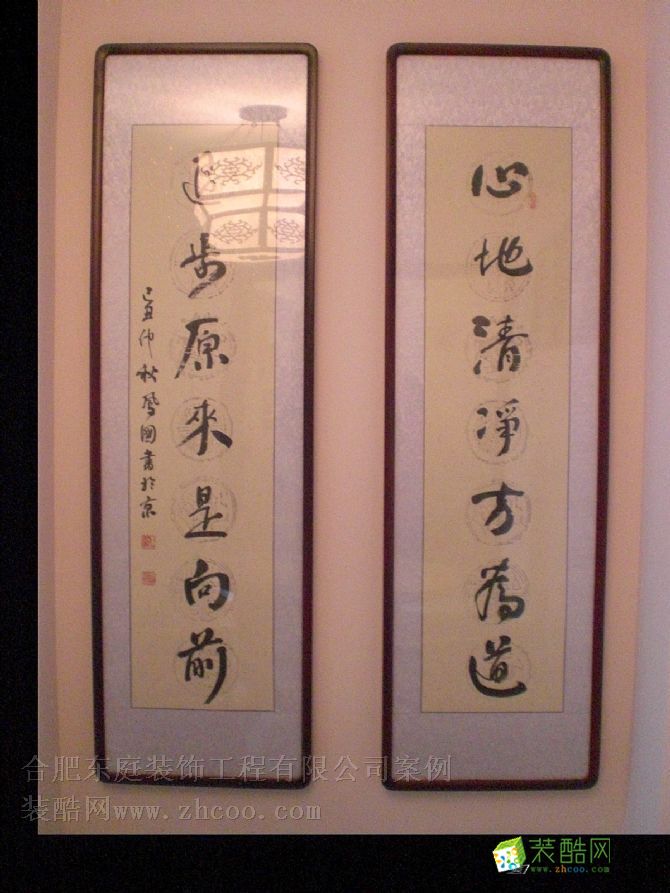 心地清淨方為道
退步原來是向前
己丑仲秋鳳國書於京
合肥东庭装饰工程有限公司案例
装酷网www.zhcoo.com
装酷网
www.zhcoo.com